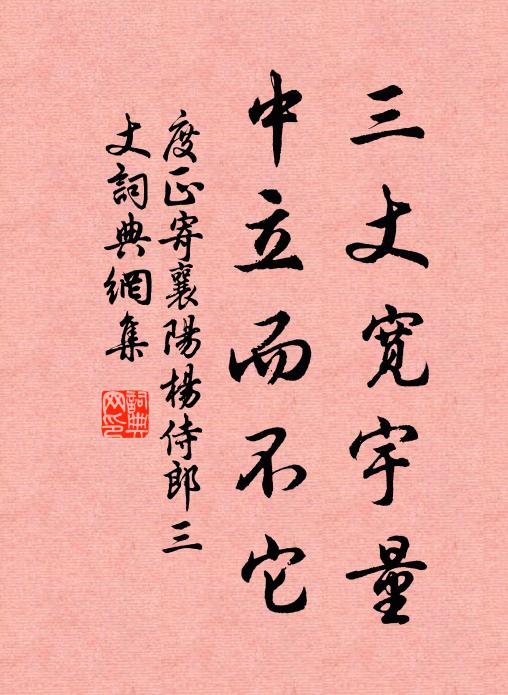 三丈寬宇量
中立而不它
度正寄襄陽楊侍郎三
丈詞典網集
詞典
网印